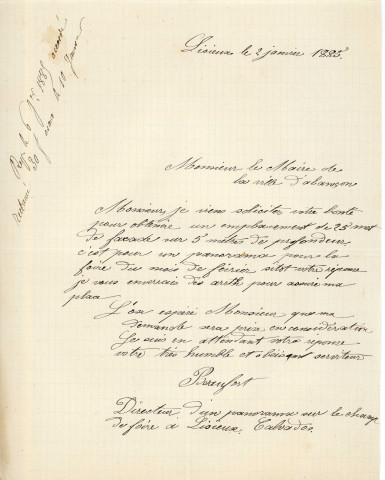 Lisieux le 2 janvier 1885
Monsieur le Maire de
la ville d'alançon
Monsieur, je viens soliciter votre bonté
pour obtenir un emplacement de 25 met
de facade sur 5 mètres de profondeur
c'est pour un panorama pour la
foire du mois de février sitot votre réponse
je vous enverais des arrhe pour assuré ma
plaa
L'on espère Monsieur que ma
demande sera pris en considération
Je suis en attendant votre réponse
votre très humble et obéissent serviteur
Beaufort
Directeur d'un panorama sur le champ
de foire a Lisieux. Calvados
Rep. le 6 1885 accordé
30 le 10 Janvier